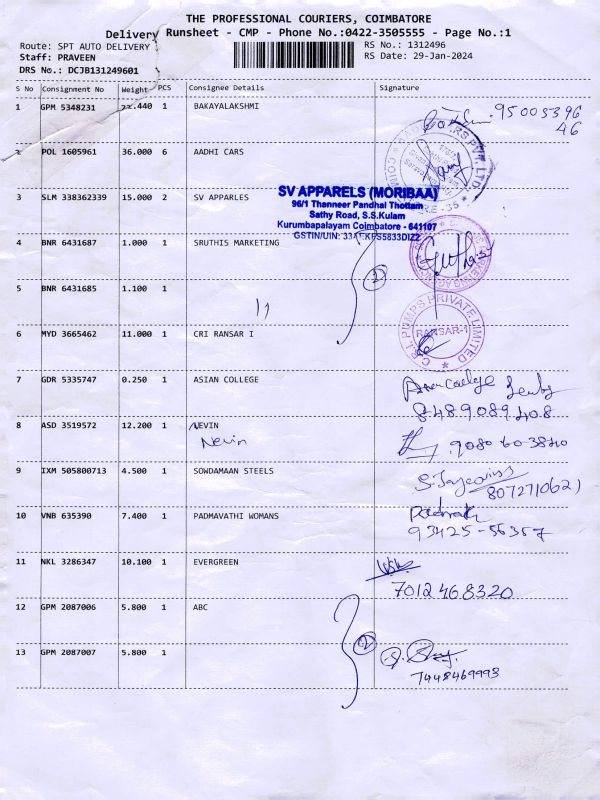 THE PROFESSIONAL COURIERS, COIMBATORE
Delivery Runsheet - CMP - Phone No.:0422-3505555 - Page No.:1
Route: SPT AUTO DELIVERY
RS No.: 1312496
Staff: PRAVEEN
RS Date: 29-Jan-2024
DRS No.: DCJB131249601
S No Consignment No Weight PCS Consignee Details Signature
1 GPM 5348231 .440 1 BAKAYALAKSHMI
95005396
46
2 POL 1605961 36.000 6 AADHI CARS
3 SLM 338362339 15.000 2 SV APPARLES
SV APPARELS (MORIBAA)
96/1 Thanneer Pandhal Thottam
Sathy Road, S.S.Kulam
Kurumbapalayam Coimbatore - 641107
GSTIN/UIN:
4 BNR 6431687 1.000 1 SRUTHIS MARKETING
2
5 BNR 6431685 1.100 1
11
C.R.I. PUMPS PRIVATE LIMITED
RANSAR-1
6 MYD 3665462 11.000 1 CRI RANSAR I
7 GDR 5335747 0.250 1 ASIAN COLLEGE
8489089408
8 ASD 3519572 12.200 1 NEVIN
Nevin
9080 60 3840
9 IXM 505800713 4.500 1 SOWDAMAAN STEELS
8072710621
10 VNB 635390 7.400 1 PADMAVATHI WOMANS
93425-56357
11 NKL 3286347 10.100 1 EVERGREEN
7012468320
12 GPM 2087006 5.800 1 ABC
2
13 GPM 2087007 5.800 1
7448469993